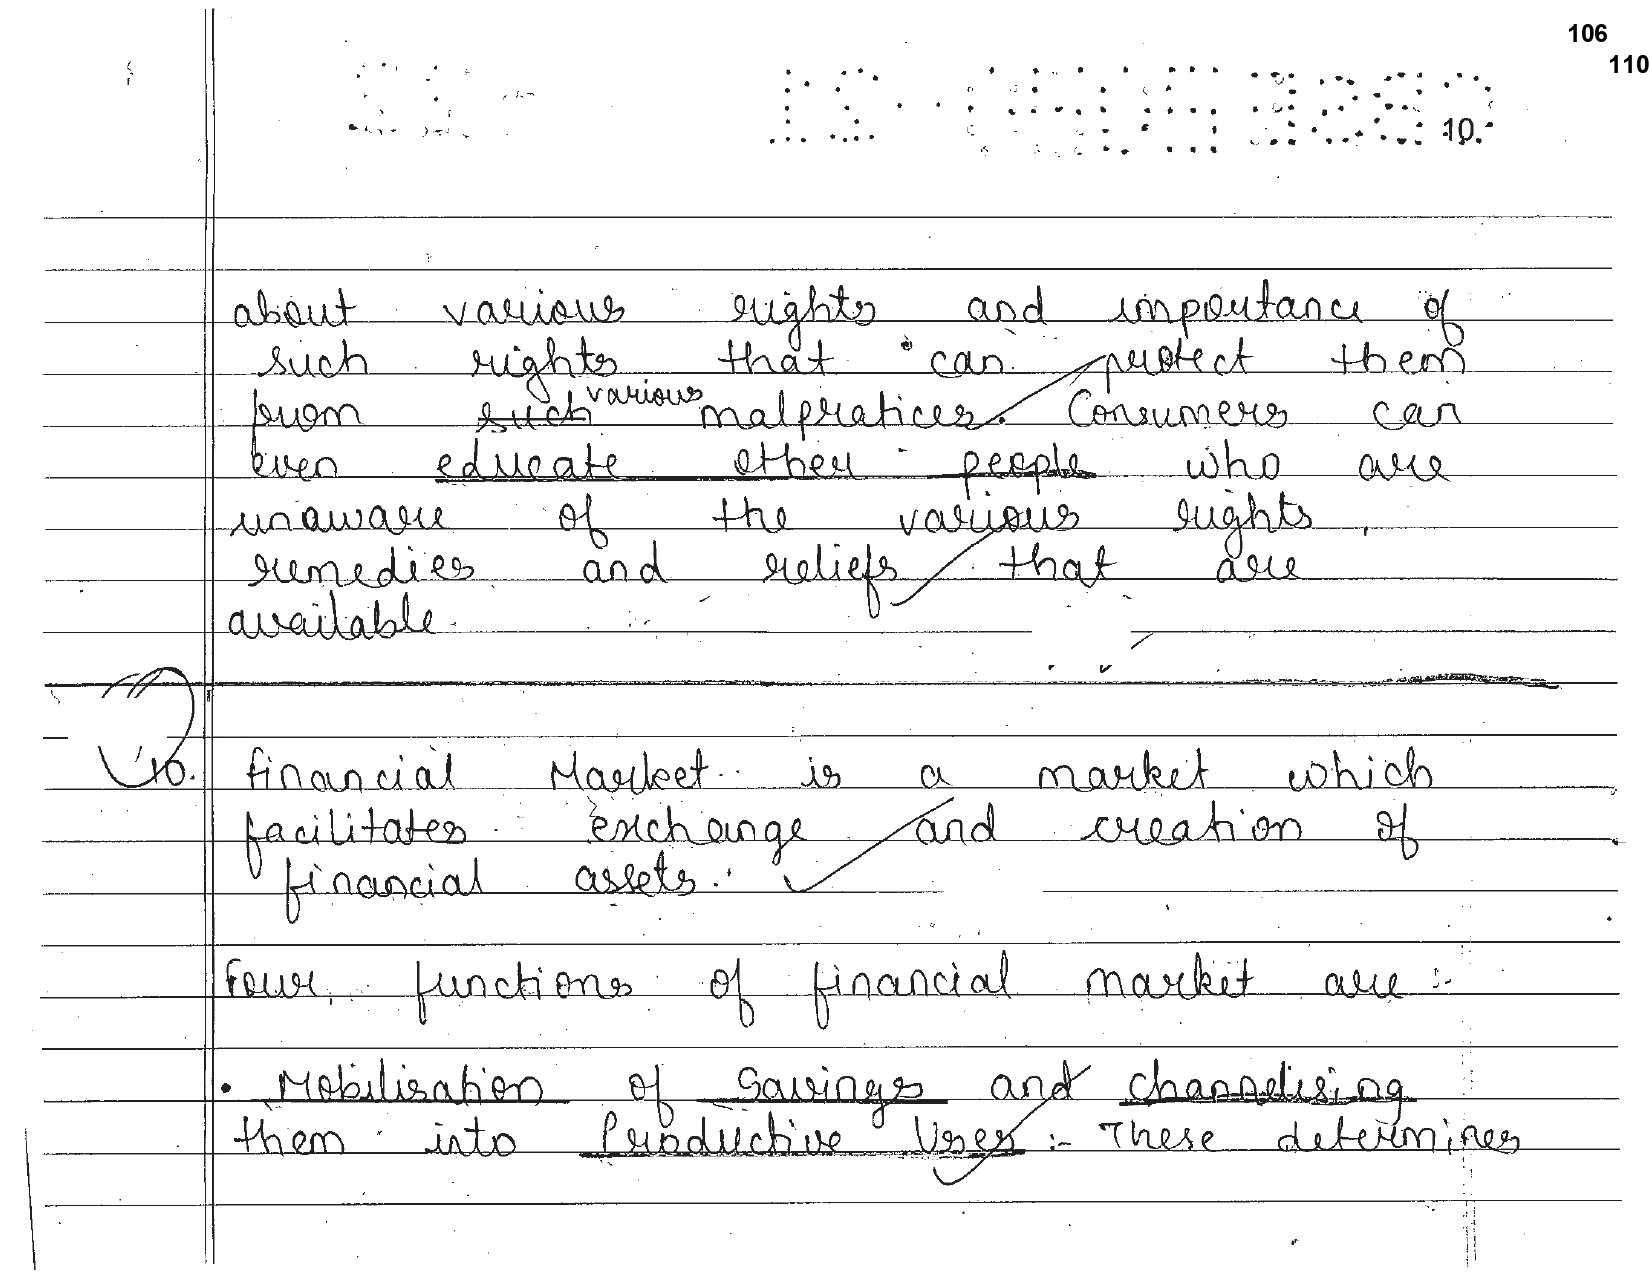 106
110
10.
about various rights and importance of
such rights that can protect them
from such various malpratices. Consumers can
even educate other people who are
unaware of the various rights,
remedies and reliefs that are
available.
10. Financial Market is a market which
facilitates exchange and creation of
financial assets.
Four functions of financial market are :-
• Mobilisation of Savings and channelising
them into Productive Uses :- These determines